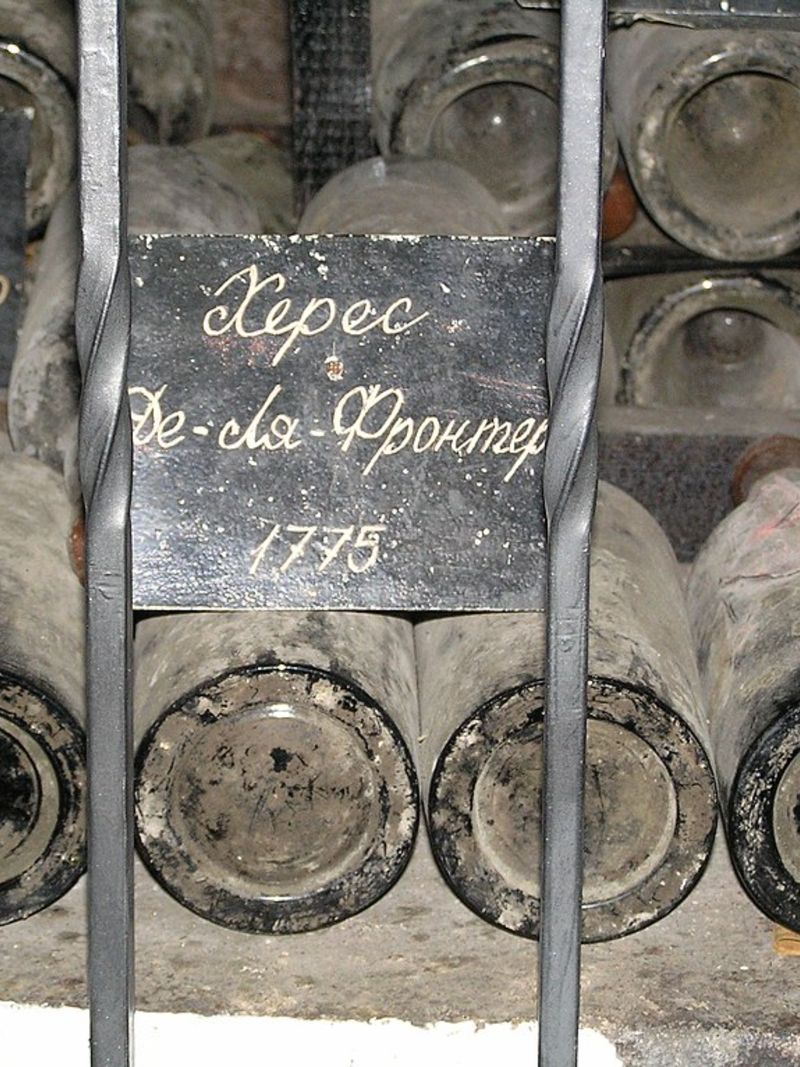 Херес
Де-ля-Фронтер
1775